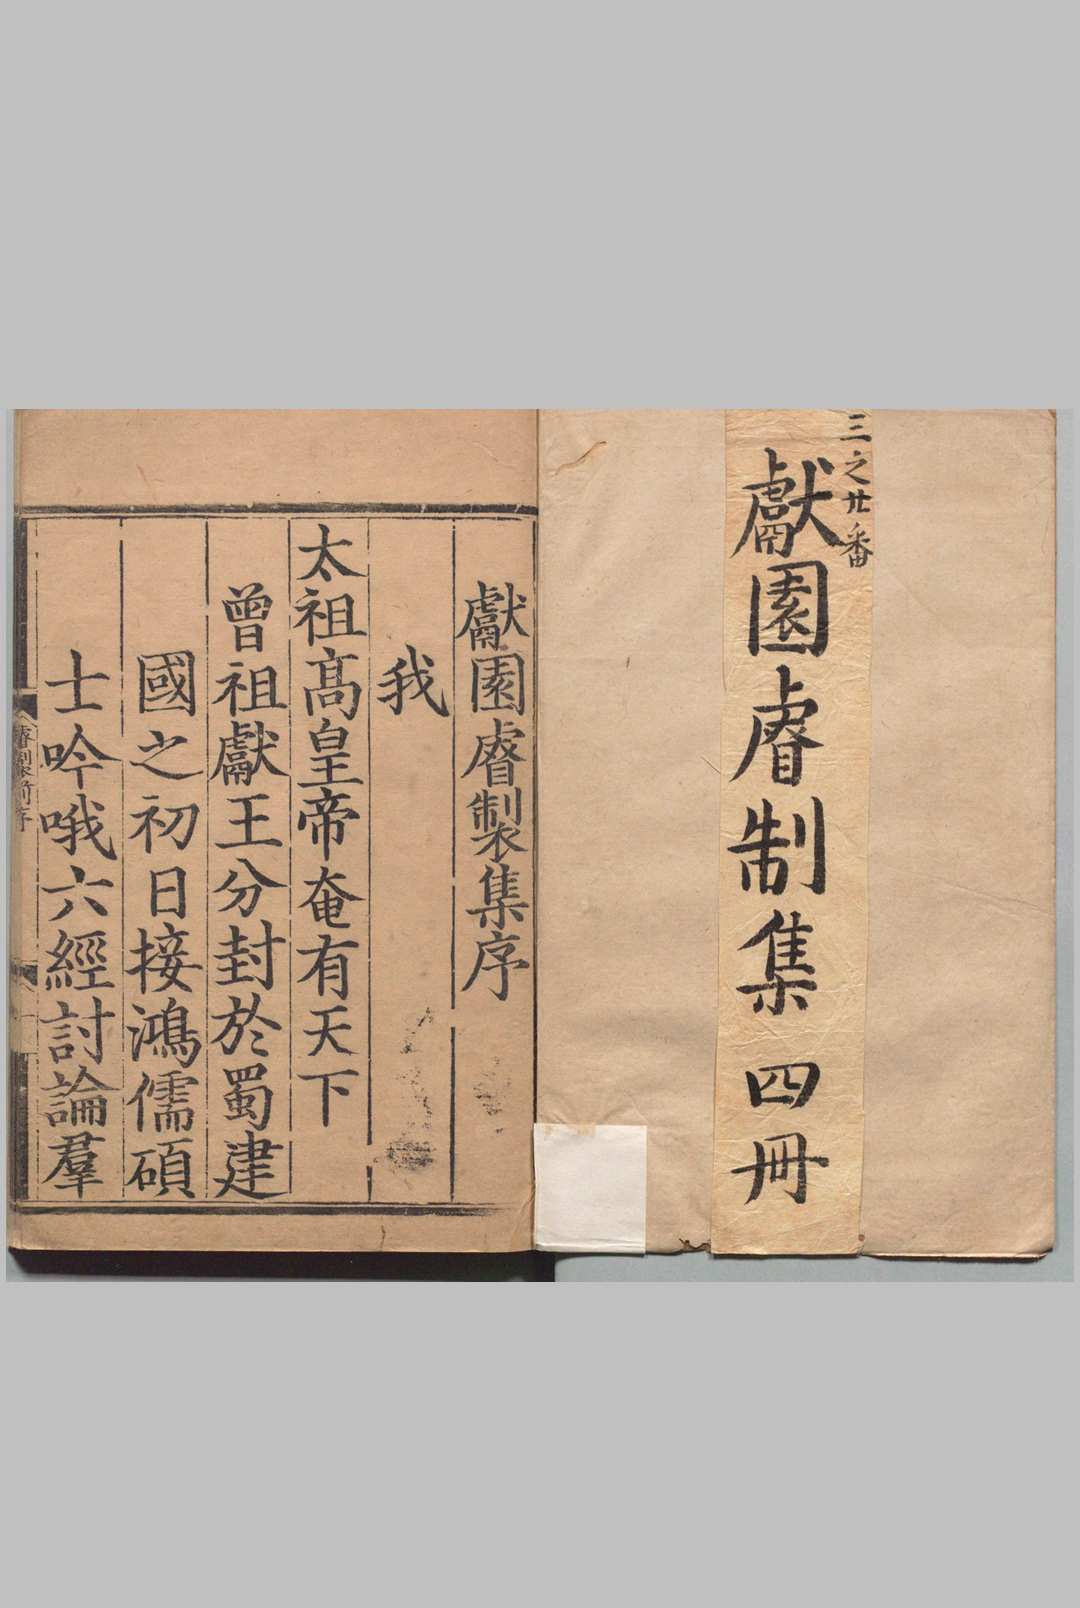 三之廿番
獻園睿制集 四冊
獻園睿製集序
我
太祖高皇帝奄有天下
曾祖獻王分封於蜀建
國之初日接鴻儒碩
士吟哦六經討論羣
睿製集前序
一